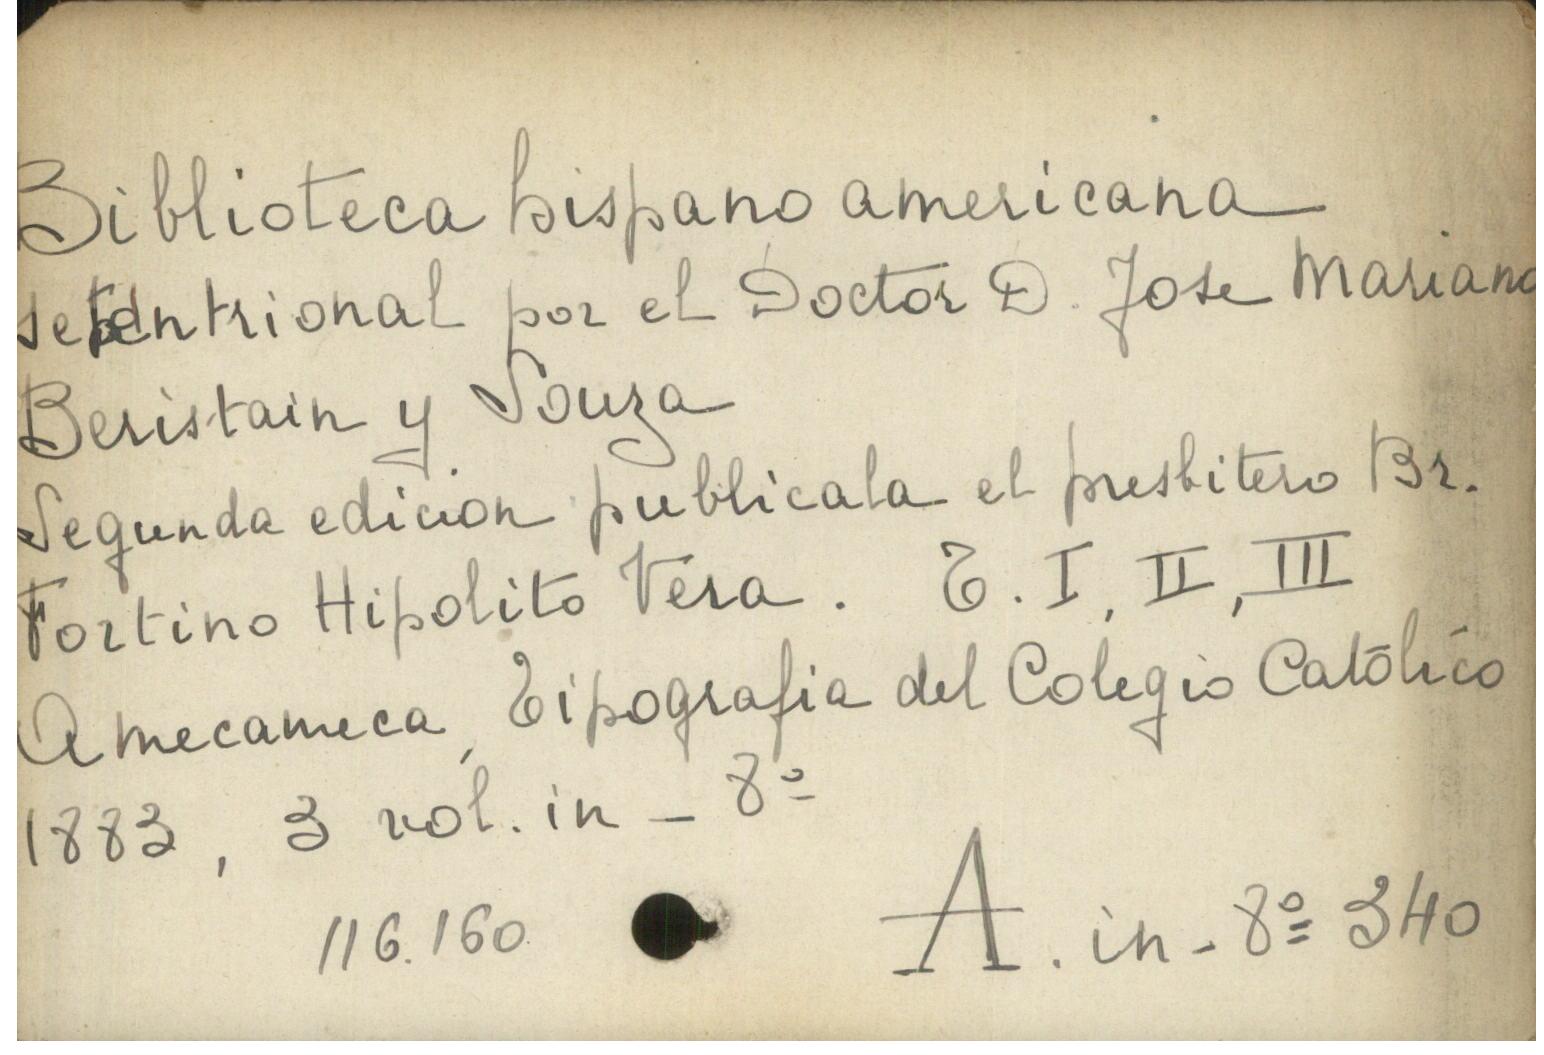 Biblioteca hispano americana
setentrional por el Doctor D. Jose Mariano
Beristain y Souza
Segunda edicion publicala el presbitero Br.
Fortino Hipolito Vera. T. I, II, III
Amecameca, Tipografia del Colegio Católico
1883, 3 vol. in-8º
116.160 A. in-8º 340